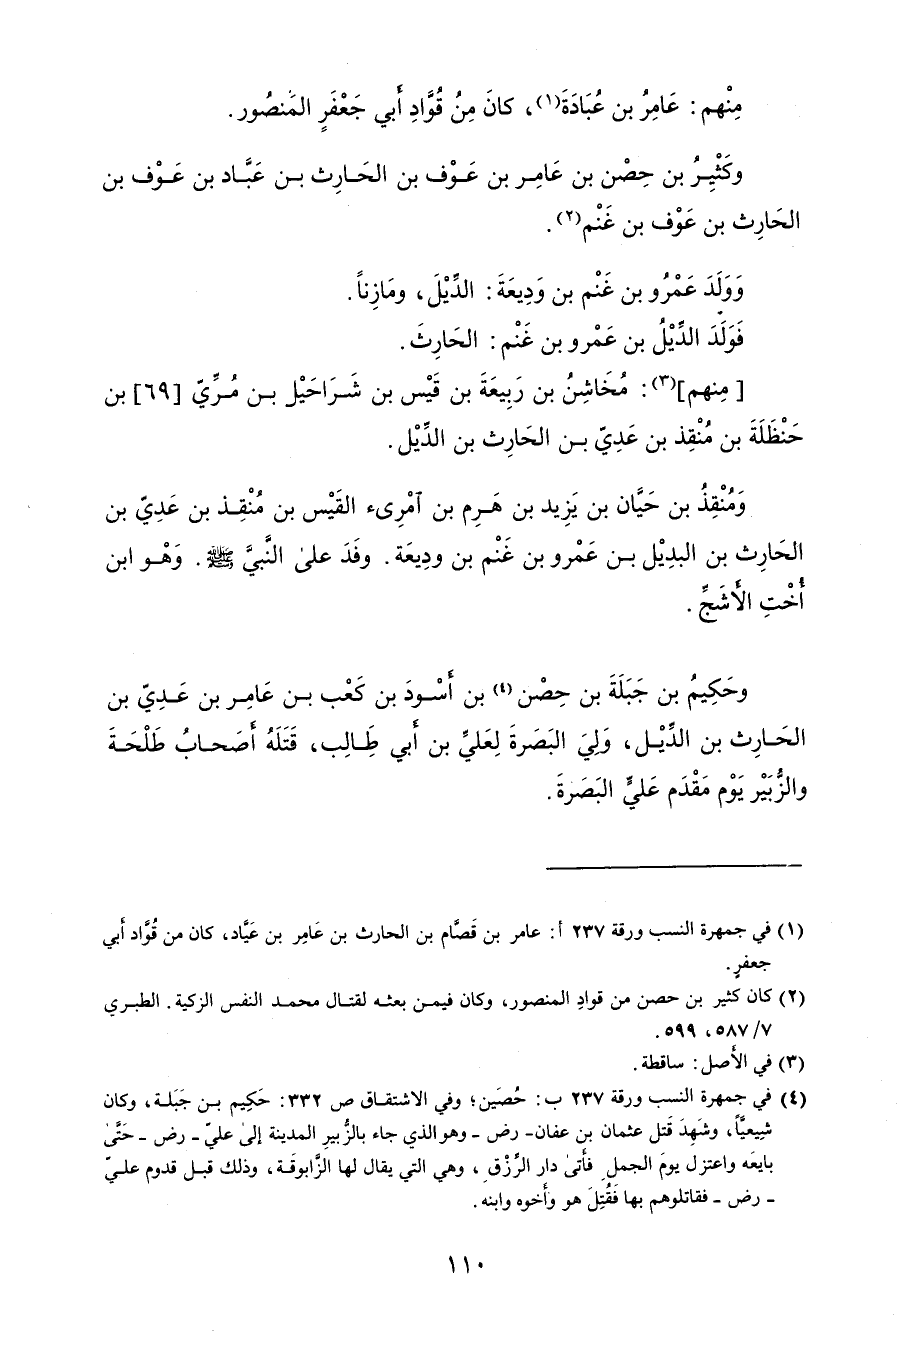 مِنْهم: عَامِرُ بن عُبَادَةَ(١)، كانَ مِنُ قُوَّادِ أَبي جَعْفَرٍ المَنصُور.
وكَثْيِرُ بن حِصْن بن عَامِـر بن عَـوْف بن الحَـارِث بـن عَبَّـاد بن عَـوْف بن
الحَارِث بن عَوْف بن غَنْم(٢).
وَوَلَدَ عَمْرُو بن غَنْم بن وَدِيعَةَ: الدِّيْلَ، ومَازِناً.
فَوَلَدَ الدِّيْلُ بن عَمْرو بن غَنْم: الحَارِثَ.
[مِنهم](٣): مُخَاشِنُ بن رَبِيعَةَ بن قَيْس بن شَـرَاحَيْل بـن مُـرِّيّ [٦٩] بن
حَنْظَلَةَ بن مُنْقِذ بن عَدِيّ بـن الحَارِث بن الدِّيْل.
وَمُنْقِذُ بن حَيَّان بن يَزِيد بن هَـرِم بن ٱمْرِىء القَيْس بن مُنْقِـذ بن عَدِيّ بن
الحَارِث بن البدِيْل بـن عَمْرو بن غَنْم بن وديعَة. وفَدَ علىٰ النَّبيَّ ﷺ. وَهْـو ابن
أُخْتِ الأَشَجِّ.
وحَكِيمُ بن جَبَلَةَ بن حِصْن(٤) بن أَسْـودَ بن كَعْب بـن عَامِر بن عَـدِيّ بن
الحَـارِث بن الدِّيْـل، وَلِيَ البَصَرةَ لِعَليِّ بن أَبي طَـالِب، قَتَلَهُ أَصَحـابُ طَلْحَـةَ
والزُّبَيْر يَوْم مَقْدَم عَليٍّ البَصَرةَ.
(١) في جمهرة النسب ورقة ٢٣٧ أ: عامر بن قَصَّام بن الحارث بن عَامِر بن عَيَّاد، كان من قُوَّاد أبي
جعفرٍ.
(٢) كان كثير بن حصن من قوادِ المنصور، وكان فيمـن بعثـه لقتـال محمـد النفس الزكية. الطبري
٧/ ٥٨٧، ٥٩٩.
(٣) في الأصل: ساقطة.
(٤) في جمهرة النسب ورقة ٢٣٧ ب: حُصَين؛ وفي الاشتقـاق ص ٣٣٢: حَكِيم بـن جَبَلـة، وكان
شيعيَّاً، وشَهِدَ قتل عثمان بن عفان- رض ـ وهو الذي جاء بالزُّبيرِ المدينة إلىٰ عليّ ـ رض ـ حَتَّىٰ
بايعَه واعتزل يومَ الجمل ِ فأَتىٰ دار الرِّزْقِ، وهي التي يقال لها الزَّابوقَـة، وذلك قبـل قدوم علـيّ
ـ رض ـ فقاتلوهم بها فَقُتِلَ هو وأَخوه وابنه.
١١٠